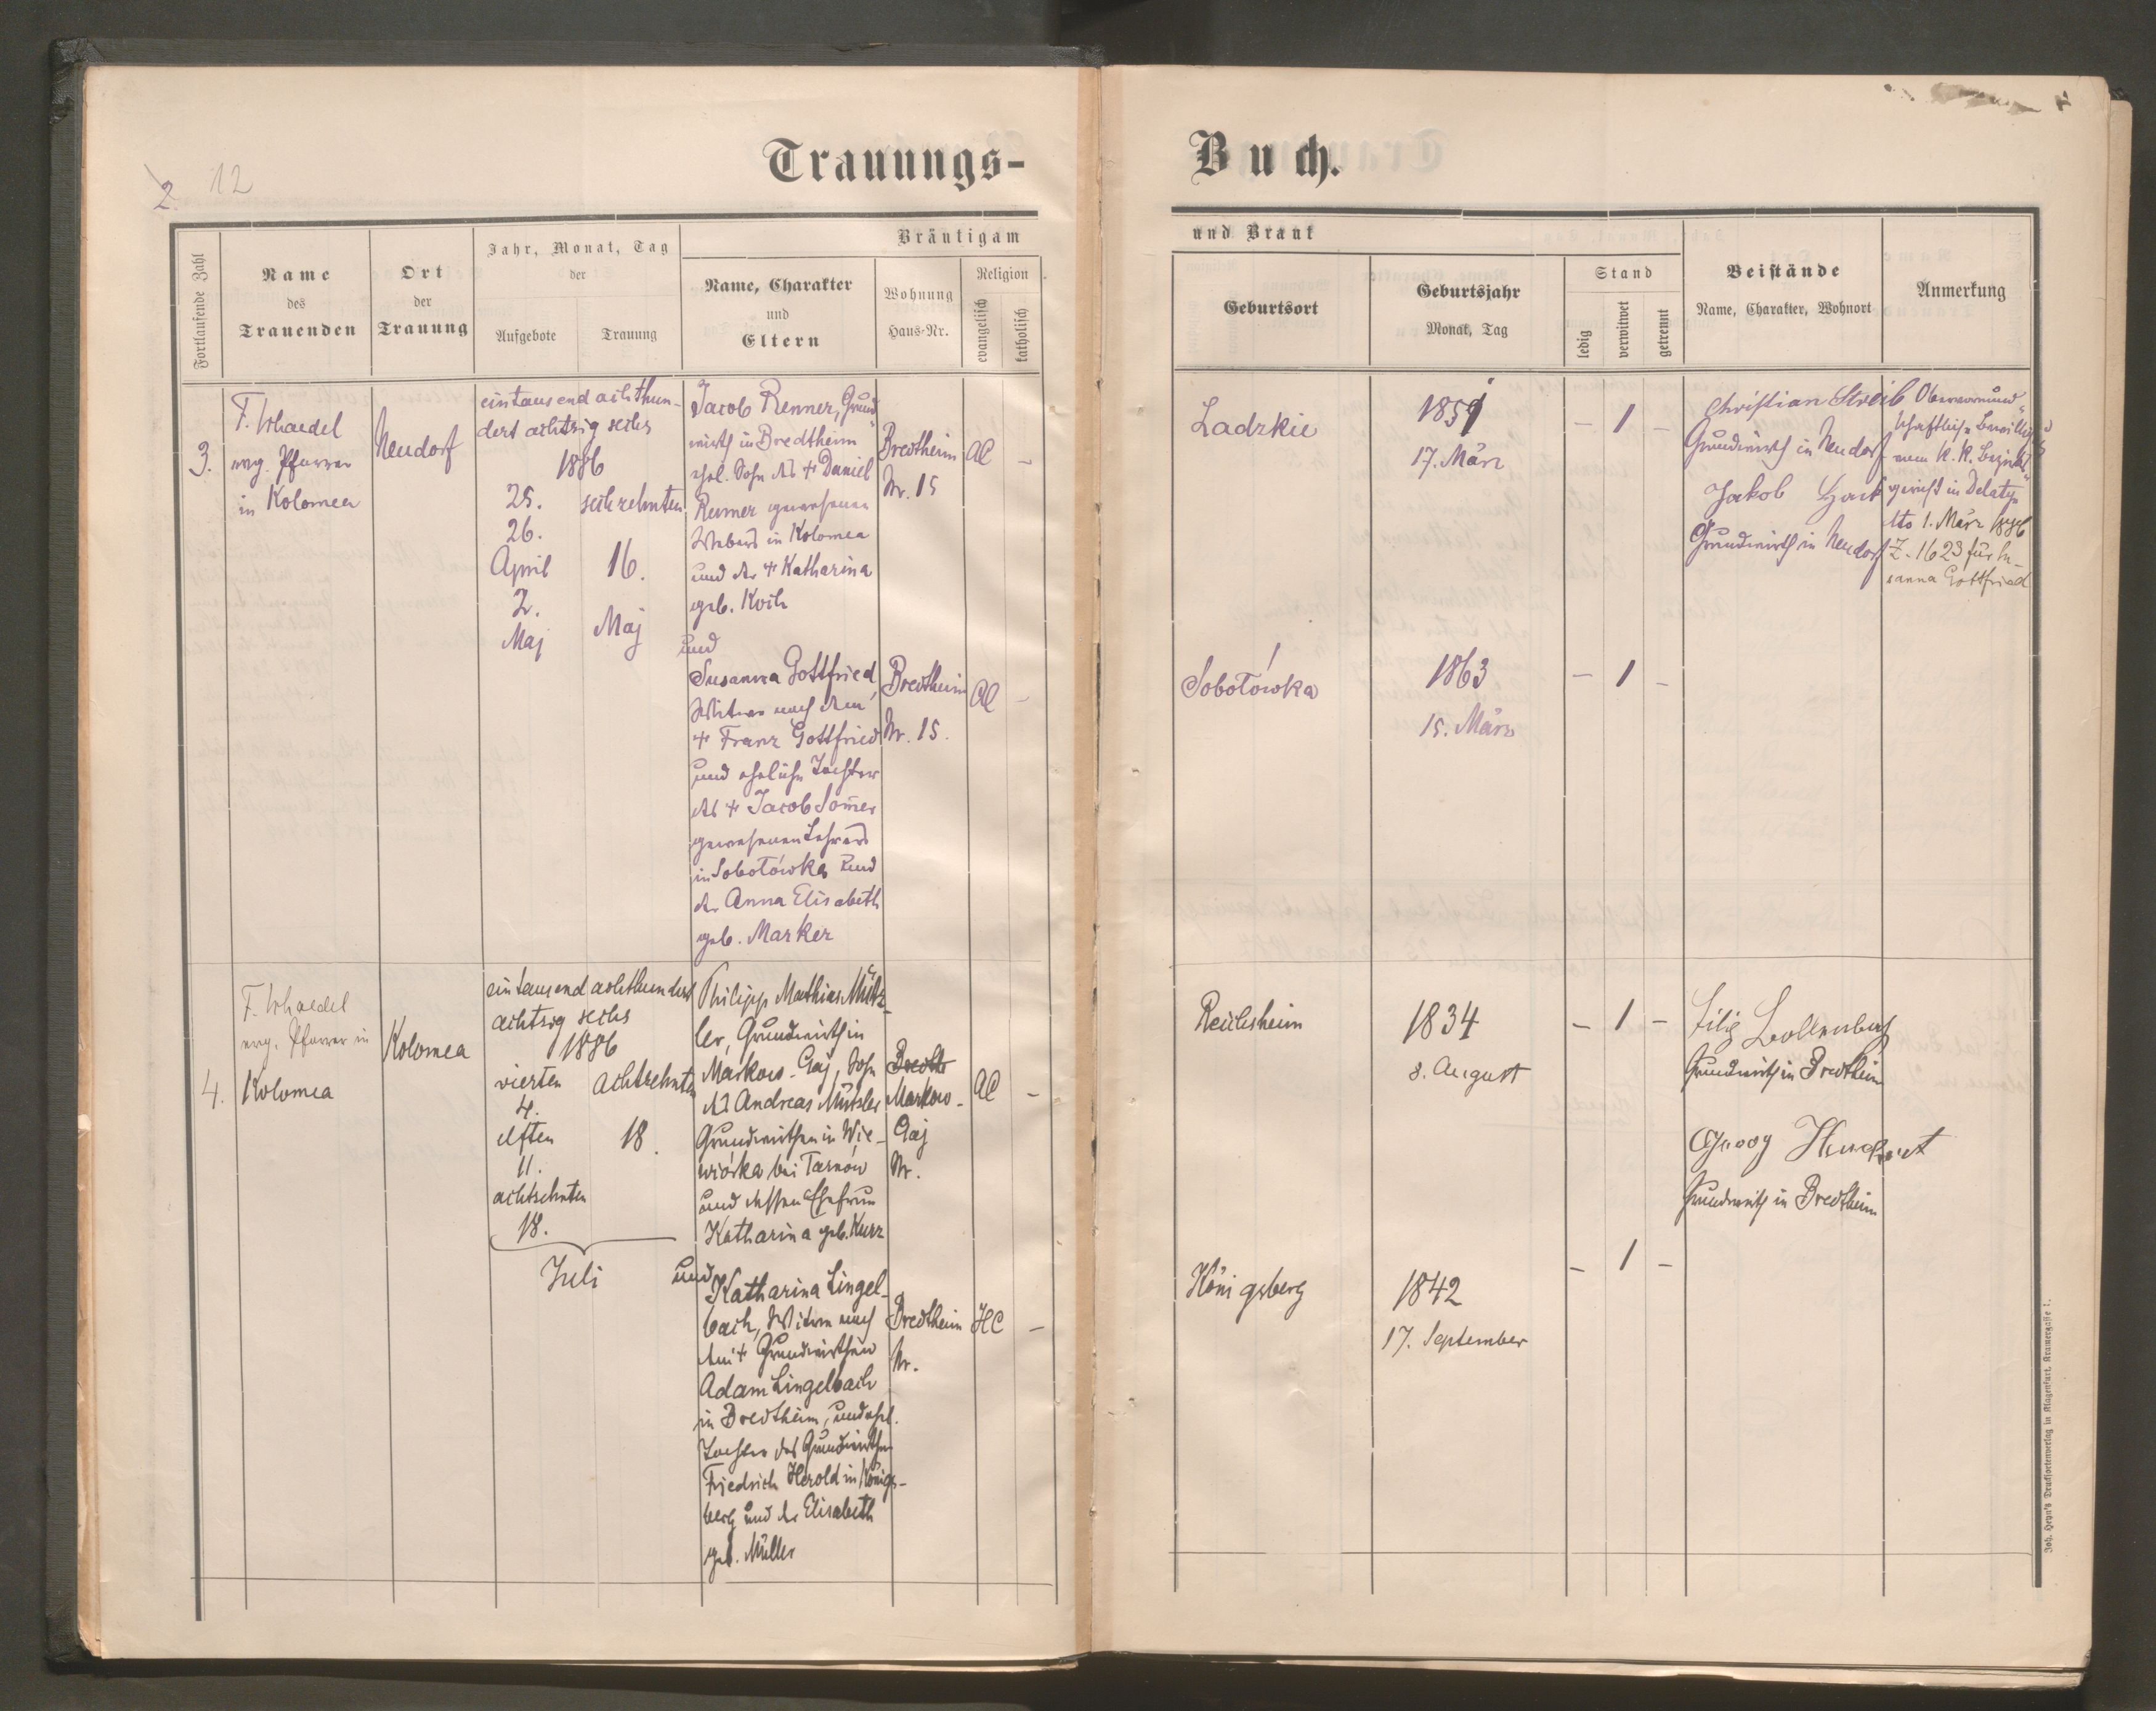 2. 12
Trauungs-
Buch.
Fortlaufende Zahl
Name
des
Trauenden
Ort
der
Trauung
Jahr, Monat, Tag
der
Aufgebote
Trauung
Bräutigam
Name, Charakter
und
Eltern
Wohnung
Haus-Nr.
Religion
evangelisch
katholisch
und Braut
Geburtsort
Geburtsjahr
Monat, Tag
Stand
ledig
verwitwet
getrennt
Beistände
Name, Charakter, Wohnort
Anmerkung
3.
evg. Pfarrer
in Kolomea
Neudorf
eintausend achthun-
dert achtzig sechs
1886
25.
26.
April
2.
Maj
sechzehnten
16.
Maj
Jacob Renner, Grund-
wirth in Bredtheim
ehel. Sohn des + Daniel
Renner gewesenen
Webers in Kolomea
und der + Katharina
geb. Koch
Bredtheim
Nr. 15
AC
–
und
Susanna Gottfried,
Witwe nach dem
+ Franz Gottfried
und eheliche Tochter
des + Jacob Som̄er
gewesenen Lehrers
in Sobotówka und
der Anna Elisabeth
geb. Marker
Bredtheim
Nr. 15.
AC
–
Ladzkie
17. März
– 1 –
Christian Streib
Grundwirth in Neudorf
Jakob
Grundwirth in Neudorf
Obervormund-
schaftliche Bewillig
vom k. k. Bezirks-
gericht in Delatyn
dto 1. März 1886
Z. 1623 für Su-
sanna Gottfried
Sobotówka
1863
15. März
– 1 –
4.
evg. Pfarrer in
Kolomea
Kolomea
eintausend achthundert
achtzig sechs
1886
vierten
4.
elften
11.
achtzehnten
18.
achtzehnten
18.
Juli
Philipp Mathias Mütz-
ler, Grundwirth in
Markow-Gaj, Sohn
des Andreas Mützler
Grundwirthen in Wie-
wiórka bei Tarnów
und dessen Ehefrau
Katharina geb. Kurz
Bredth
Markow-
Gaj
Nr.
AC
–
und
Katharina Lingel-
bach, Witwe nach
dem + Grundwirthen
Adam Lingelbach
in Bredtheim, und ehel.
Tochter des Grundwirthen
Friedrich Herold in Königs-
berg und der Elisabeth
geb. Müller
Bredtheim
Nr.
HC
–
Reichsheim
1834
8. August
– 1 –
Grundwirth in Bredtheim
Grundwirth in Bredtheim
Königsberg
1842
17. September
– 1 –
Joh. Heyn's Drucksortenverlag in Klagenfurt. Kramergasse